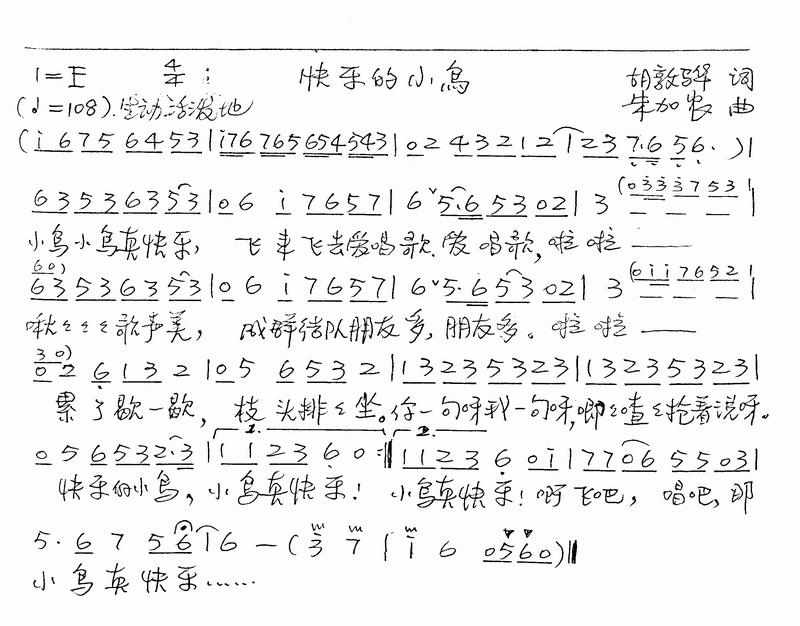 1=E 4/4 快乐的小鸟 胡敦骅 词
(♩=108).生动活泼地 朱加农 曲
(i 6 7 5 6 4 5 3 | i 7 6 7 6 5 6 5 4 5 4 3 | 0 2 4 3 2 1 2 | 1 2 3 7·6 5 6· ) |
6 3 5 3 6 3 5 3 | 0 6 i 7 6 5 7 | 6 ˅ 5·6 5 3 0 2 | 3 (0 3 3 3 7 5 3 |
小鸟小鸟真快乐, 飞来飞去爱唱歌.爱唱歌,啦啦——
6 0)
6 3 5 3 6 3 5 3 | 0 6 i 7 6 5 7 | 6 ˅ 5·6 5 3 0 2 | 3 (0 i i 7 6 5 2 |
啾々々々歌声美, 成群结队朋友多,朋友多。啦啦——
3 0)
0 2 6 1 3 2 | 0 5 6 5 3 2 | 1 3 2 3 5 3 2 3 | 1 3 2 3 5 3 2 3 |
累了歇一歇, 枝头排々坐。你一句呀我一句呀,唧々喳々抢着说呀。
1. 2.
0 5 6 5 3 2·3 | 1 1 2 3 6 0 :‖ 1 1 2 3 6 0 i | 7 7 0 6 5 5 0 3 |
快乐的小鸟,小鸟真快乐! 小鸟真快乐!啊飞吧, 唱吧,那
5· 6 7 5 6 | 6 — (3 7 | i 6 0 5 6 0)‖
小鸟真快乐……